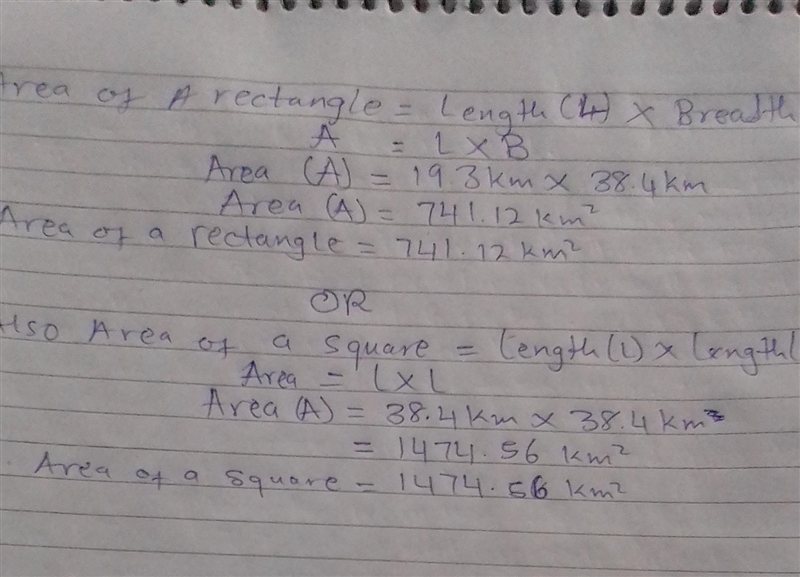 Area of A rectangle = Length (L) x Breadth
A = L x B
Area (A) = 19.3 km x 38.4 km
Area (A) = 741.12 km²
Area of a rectangle = 741.12 km²
OR
Also Area of a square = Length (L) x Length (
Area = L x L
Area (A) = 38.4 km x 38.4 km
= 1474.56 km²
Area of a square = 1474.56 km²